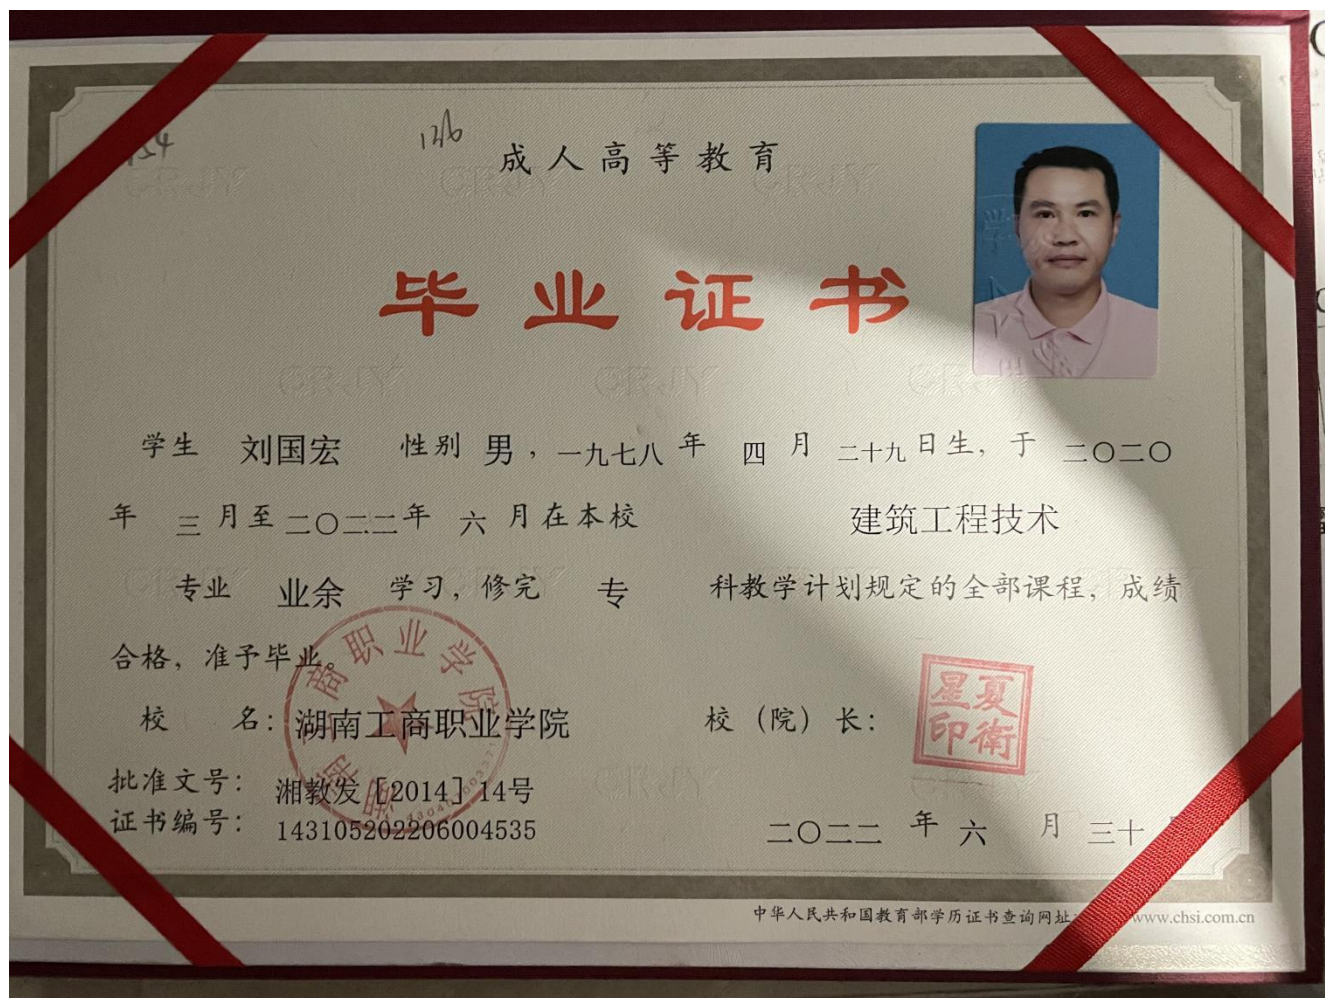 成人高等教育
毕业证书
学生 刘国宏 性别 男，一九七八年 四 月 二十九日生，于 二〇二〇
年 三 月至二〇二二年 六 月在本校 建筑工程技术
专业 业余 学习，修完 专 科教学计划规定的全部课程，成绩
合格，准予毕业。
校 名：湖南工商职业学院
校（院）长：
夏衛星印
批准文号：湘教发［2014］14号
证书编号：143105202206004535
二〇二二 年 六 月 三十
中华人民共和国教育部学历证书查询网址 www.chsi.com.cn
CRJY
CRJY
CRJY
CRJY
CRJY
CRJY